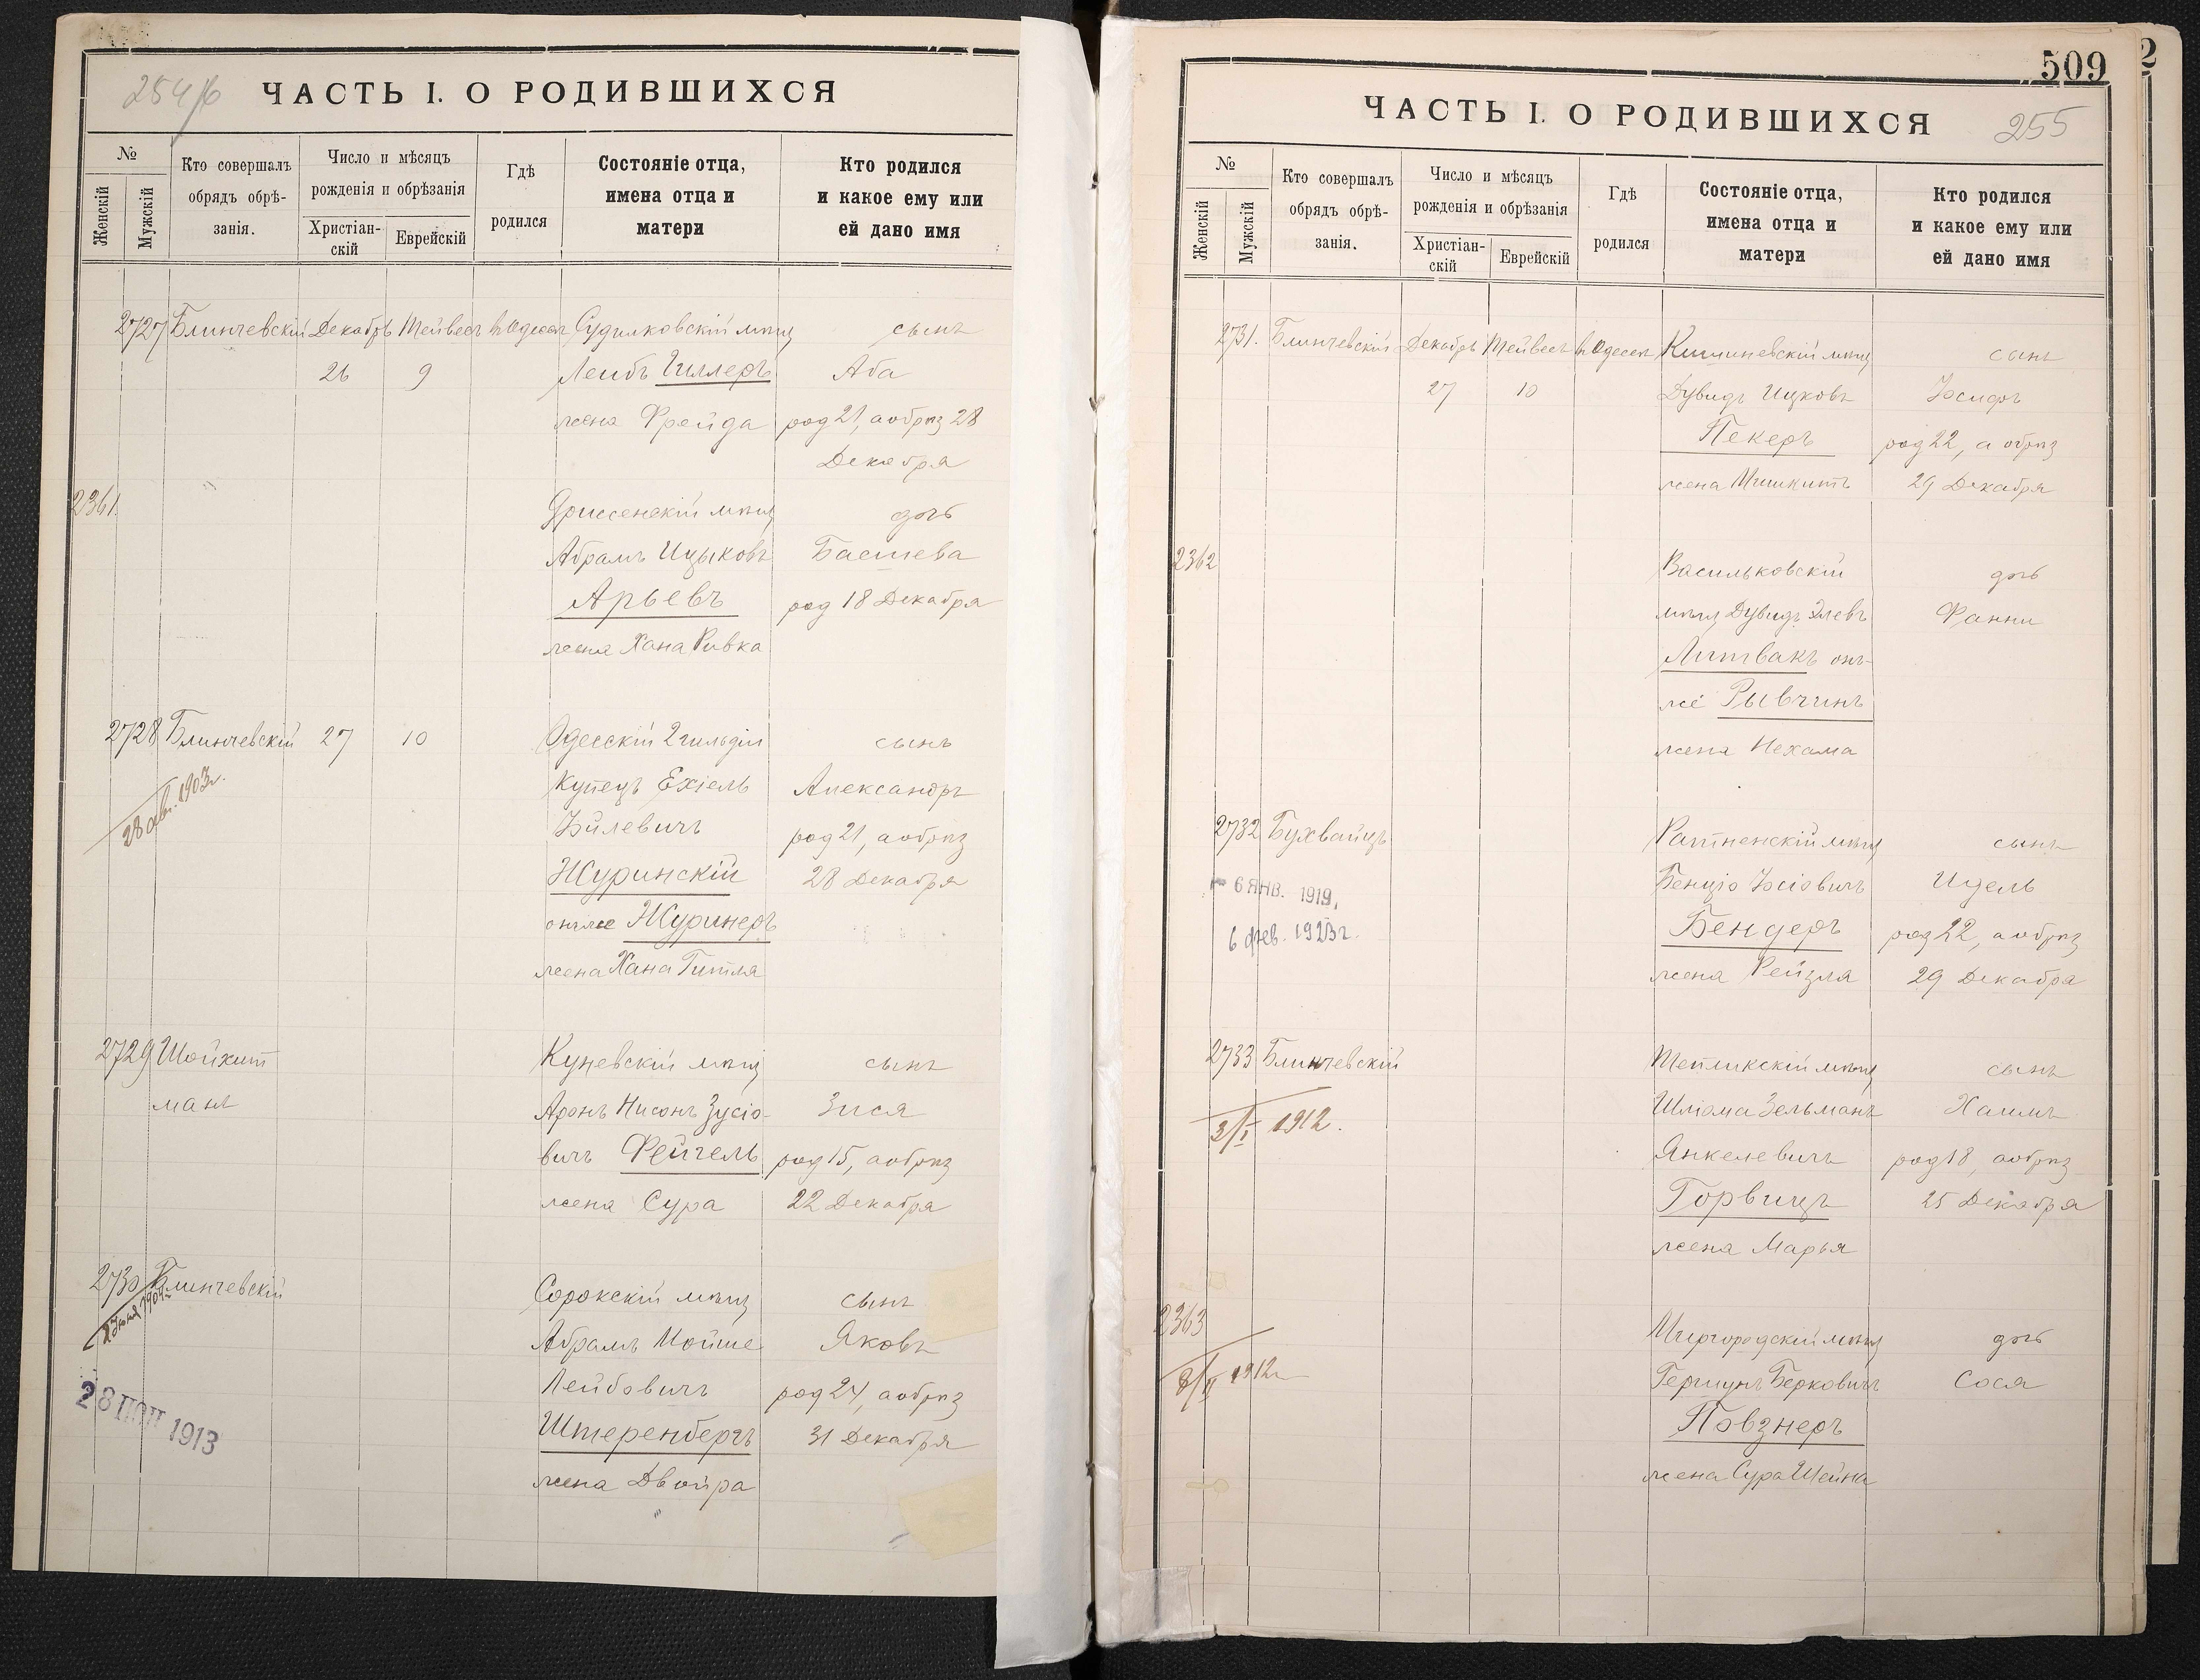 254/б
ЧАСТЬ I. О РОДИВШИХСЯ
№
Женскій
Мужскій
Кто совершалъ
обрядъ обрѣ-
занія.
Число и мѣсяцъ
рожденія и обрѣзанія
Христіан-
скій
Еврейскій
Гдѣ
родился
Состояніе отца,
имена отца и
матери
Кто родился
и какое ему или
ей дано имя
2727 Блинчевскій Декабрь Тейвесъ въ Одессѣ Судилковскій мѣщ сынъ
26 9 Лейбъ Гиллеръ Аба
жена Фрейда род 21, а обрѣз 28
Декабря
2361. Дриссенскій мѣщ дочь
Абрамъ Ицыковъ Басшева
Арьевъ род 18 Декабря
жена Хана Ривка
2728 Блинчевскій 27 10 Одесскій 2 гильдіи сынъ
28 авг. 1903 г. Купецъ Ехіель Александръ
Іойлевичъ род 21, а обрѣз
Журинскій 28 Декабря
онъ же Журинеръ
жена Хана Гитля
2729 Шойхит Куневскій мѣщ сынъ
манъ Аронъ Нисонъ Зусіо- Зися
вичъ Фейгель род 15, а обрѣз
жена Сура 22 Декабря
2730 Блинчевскій Сорокскій мѣщ сынъ
Абрамъ Мойше Яковъ
Лейбовичъ род 24, а обрѣз
28 1913 Штеренбергъ 31 Декабря
жена Двойра
509
ЧАСТЬ I. О РОДИВШИХСЯ
255
№
Женскій
Мужскій
Кто совершалъ
обрядъ обрѣ-
занія.
Число и мѣсяцъ
рожденія и обрѣзанія
Христіан-
скій
Еврейскій
Гдѣ
родился
Состояніе отца,
имена отца и
матери
Кто родился
и какое ему или
ей дано имя
2731. Блинчевскій Декабрь Тейвесъ въ Одессѣ Кишиневскій мѣщ сынъ
27 10 Дувидъ Ицковъ Іосифъ
Пекеръ род 22, а обрѣз
жена 29 Декабря
2362 Васильковскій дочь
мѣщ Дувидъ Элевъ Фанни
Литвакъ онъ-
же Рывчинъ
жена Нехама
2732 Бухвайцъ Ратненскій мѣщ сынъ
6 ЯНВ. 1919. Бенціо Іосіовичъ Идель
6 фев. 1923 г. Бендеръ род 22, а обрѣз
жена Рейзля 29 Декабря
2733 Блинчевскій Тепликскій мѣщ сынъ
3/I 1912. Шліома Зельманъ Хаимъ
Янкелевичъ род 18, а обрѣз
Горвицъ 25 Декабря
жена Марья
2363 Миргородскій мѣщ дочь
8/II 1912 г Гершунъ Берковичъ Сося
Повзнеръ
жена Сура Шейна